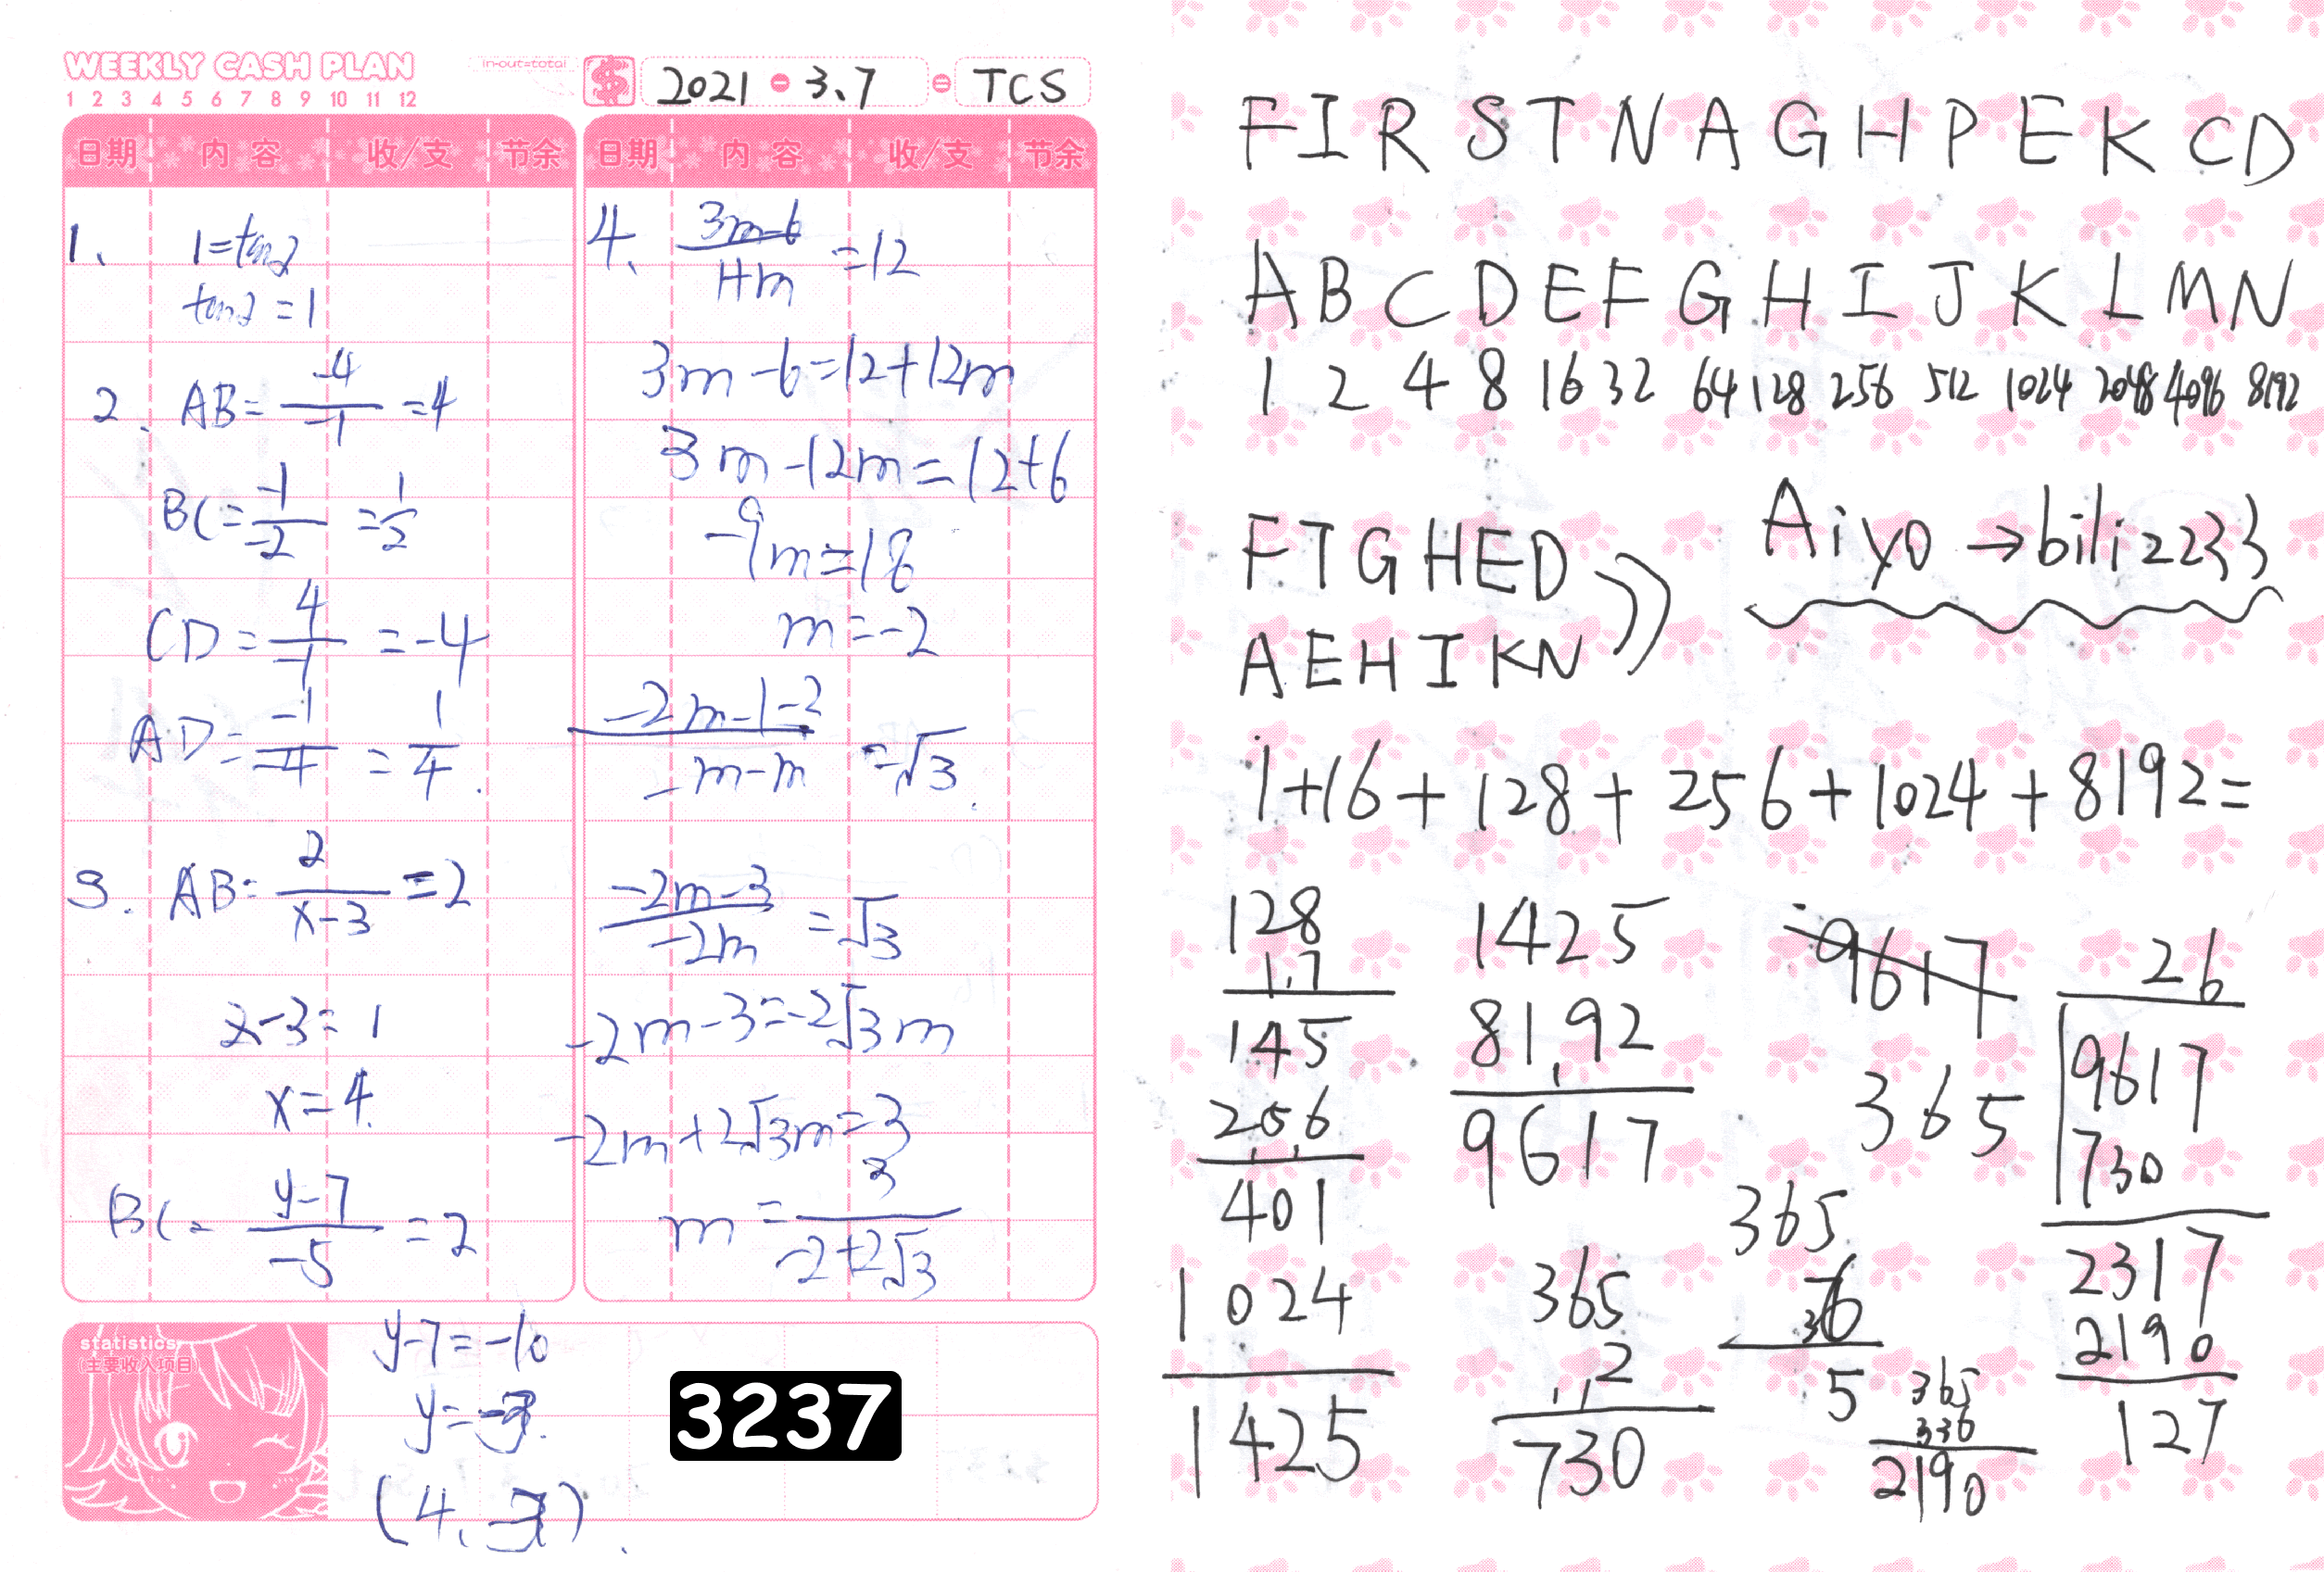 WEEKLY CASH PLAN
1 2 3 4 5 6 7 8 9 10 11 12
in-out=total
$ 2021 - 3.7 = TCS
日期 内 容 收/支 节余
日期 内 容 收/支 节余
1、 1=tan2
tan2=1
2、 AB= -4/-1 =4
BC= -1/-2 = 1/2
CD= 4/-1 =-4
AD= -1/-4 = 1/4.
3. AB= 2/x-3 =2
x-3=1
x=4.
BC= y-7/-5 =2
y-7=-10
y=-3.
(4、-3).
statistics
(主要收入项目)
4、 3m-6/1+m =12
3m-6=12+12m
3m-12m=12+6
-9m=18
m=-2
-2m-1-2/-m-m =√3.
-2m-3/-2m =√3
-2m-3=-2√3m
-2m+2√3m=3
m= 3/-2+2√3
3237
FIRSTNAGHPEKCD
ABCDEFGHIJKLMN
1 2 4 8 16 32 64 128 256 512 1024 2048 4096 8192
FTGHED
AEHIKN
Aiyo →bili2233
1+16+128+256+1024+8192=
128
17
145
256
401
1024
1425
1425
8192
9617
365
2
730
=9617
365
26
9617
730
2317
2190
127
365
5
365
2190